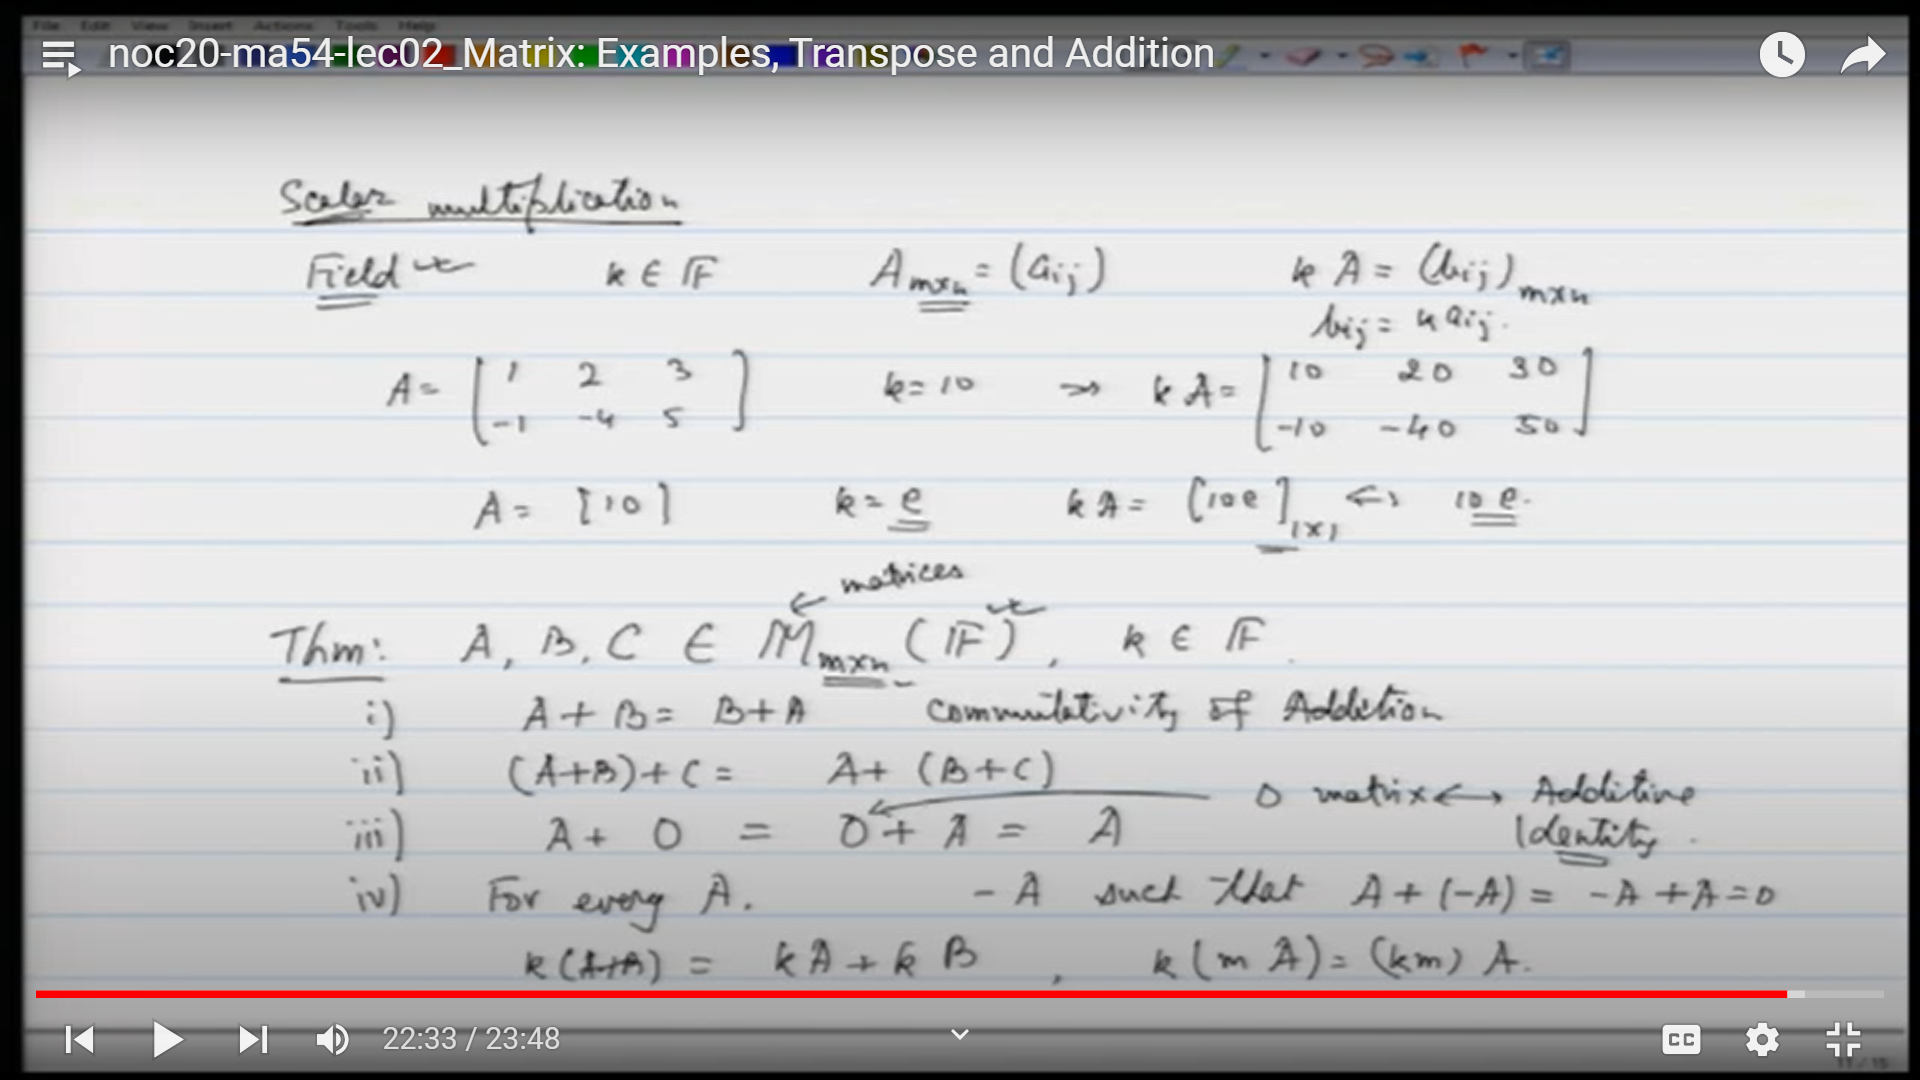 File Edit View Insert Actions Tools Help
noc20-ma54-lec02_Matrix: Examples, Transpose and Addition
Scalar multiplication
Field k ∈ F A_{m×n} = (a_{ij}) k A = (b_{ij})_{m×n}
b_{ij} = k a_{ij}.
A = [1 2 3; -1 -4 5] k = 10 → k A = [10 20 30; -10 -40 50]
A = [10] k = e k A = [10e]_{1×1} ↔ 10 e.
← matrices
Thm: A, B, C ∈ M_{m×n} (F), k ∈ F.
i) A + B = B + A commutativity of Addition
ii) (A+B)+C = A+ (B+C)
O matrix ↔ Additive Identity.
iii) A + O = O + A = A
iv) For every A. -A such that A + (-A) = -A + A = 0
k(A+B) = kA + k B, k(m A) = (km) A.
22:33 / 23:48
CC
11 / 15